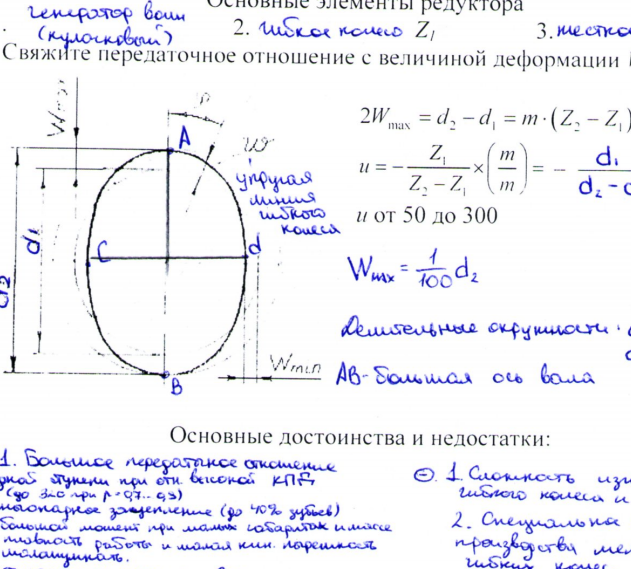 Основные элементы редуктора
генератор волн
(кулачковый)
2. гибкое колесо Z₁
3. жестко
Свяжите передаточное отношение с величиной деформации
Wmax
A
W
упругая
линия
гибкого
колеса
d₁
d₂
C
d
B
Wmin
2Wmax = d₂ – d₁ = m·(Z₂ – Z₁)
u = – Z₁ / (Z₂ – Z₁) × (m / m) = – d₁ / d₂ –
u от 50 до 300
Wmax = 1/100 d₂
Делительные окружности
AB - большая ось вала
Основные достоинства и недостатки:
1. Большое передаточное отношение
одной ступени при отн. высокой КПД
(до 320 при
зацепление (до 40% зубьев)
большой момент при малых габаритах и массе
работы и малая кин. погрешность
⊖. 1. Сложность изг
гибкого колеса и
2. Специальна
производства
гибких колес